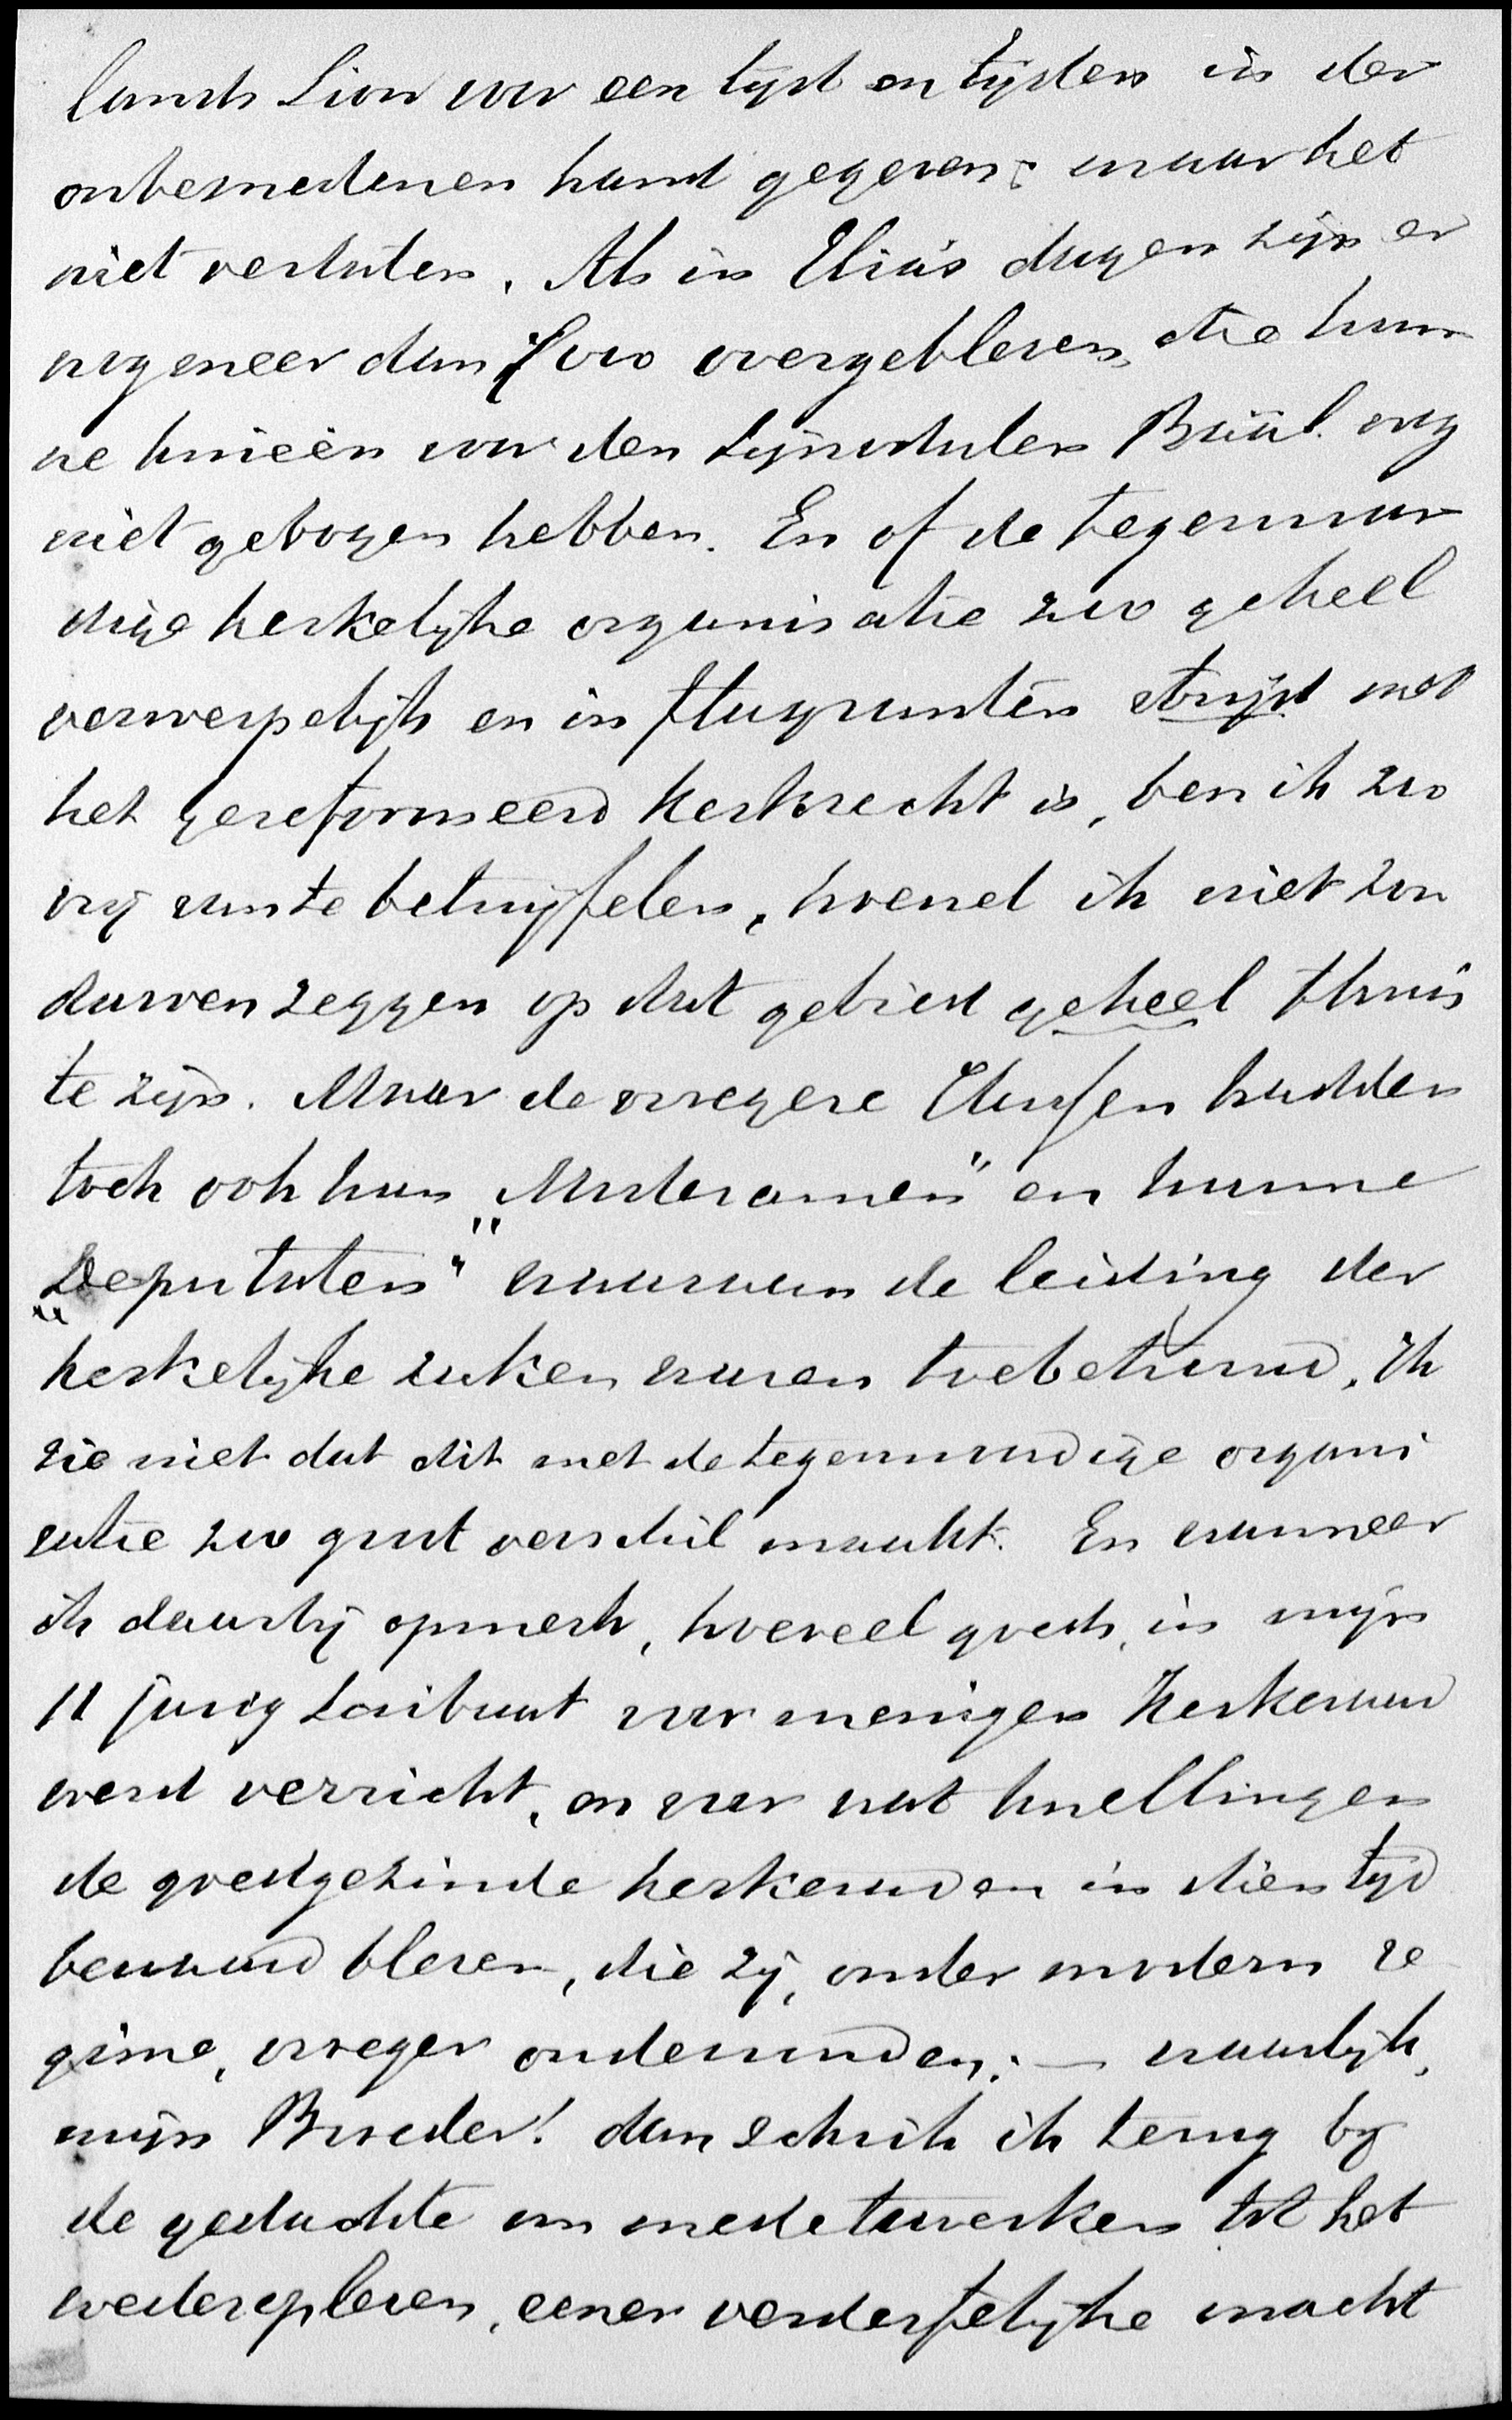 lands Sion voor een tijd en tijden in der
onbesnedenen hand gegeven; maar het
niet verlaten. Als in Elia's dagen zijn er
nog meer dan 7000 overgebleven, die hun
ne knieën voor den synodalen Baäl nog
niet gebogen hebben. En of de tegenwoor
dige kerkelijke organisatie zoo geheel
verwerpelijk en in flagranten strijd met
het gereformeerd Kerkrecht is, ben ik zoo
vrij aan te betwijfelen, hoewel ik niet zou
durven zeggen op dat gebied geheel thuis
te zijn. Maar de vroegere Classen hadden
toch ook hun „Moderamen" en hunne
„Deputaten" waaraan de leiding der
kerkelijke zaken waren toebetrouwd. Ik
zie niet dat dit met de tegenwoordige organi
satie zoo groot verschil maakt. En wanneer
ik daarbij opmerk, hoeveel goeds, in mijn
11 jarig Scribaat voor menigen Kerkeraad
werd verricht, en voor wat knellingen
de goedgezinde kerkeraden in dien tijd
bewaard bleven, die zij, onder modern re
gime, vroeger ondervonden; — waarlijk,
mijn Broeder! dan schrik ik terug bij
de gedachte om mede te werken tot het
wederopleven, eener verderfelijke macht